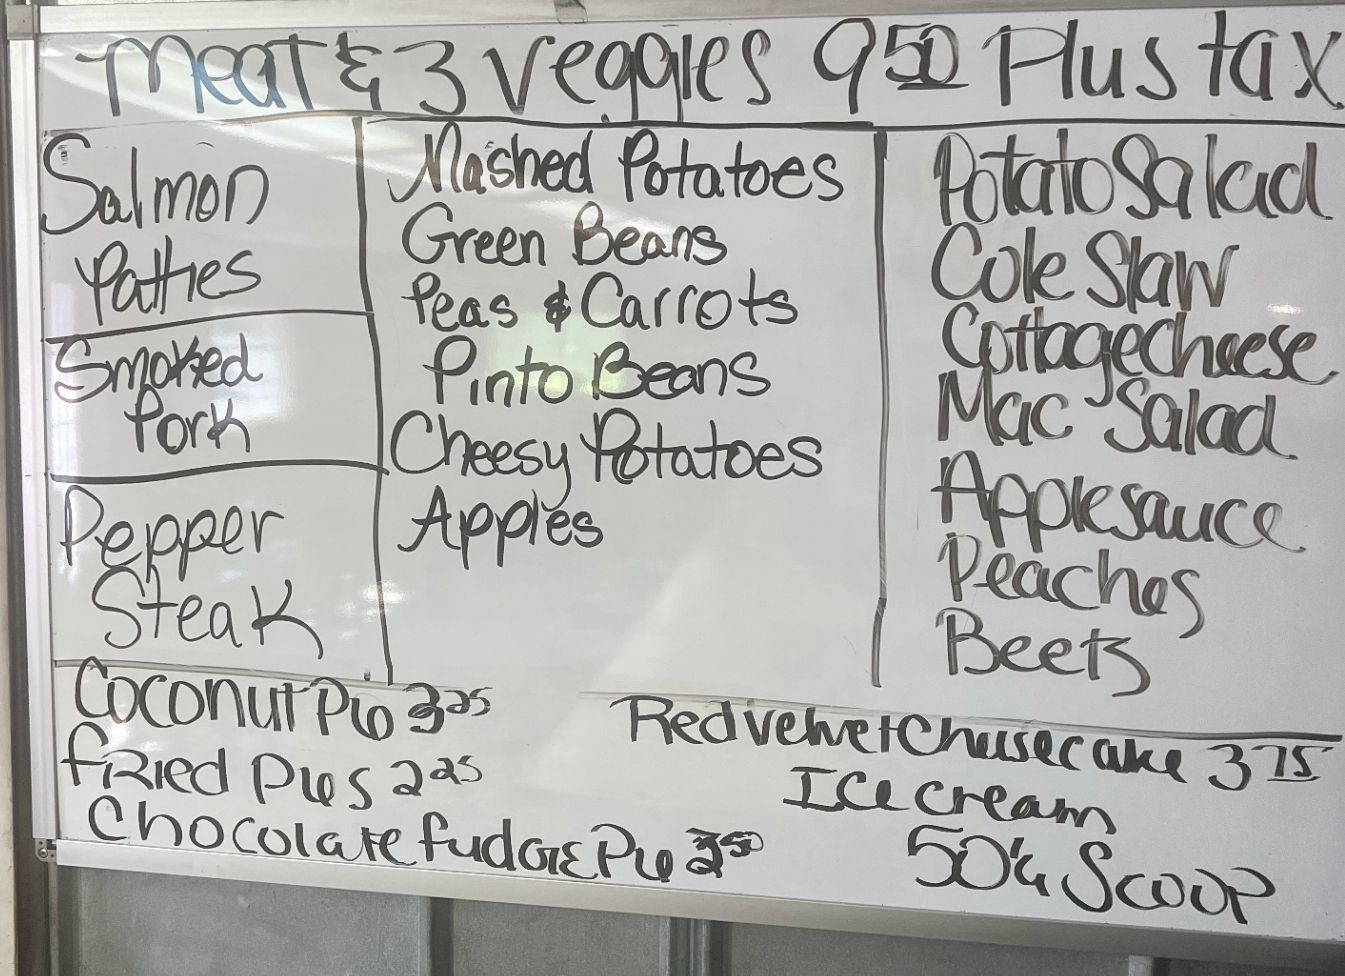 Meat & 3 Veggies 9 50 Plus tax
Salmon
Patties
Smoked
Pork
Pepper
Steak
Mashed Potatoes
Green Beans
Peas & Carrots
Pinto Beans
Cheesy Potatoes
Apples
Potato Salad
Cole Slaw
Cottage cheese
Mac Salad
Applesauce
Peaches
Beets
Coconut Pie 3 25
fRied Pies 2 25
Chocolate fudge Pie
Red velvet Cheesecake 3 75
Ice cream
50¢ a Scoop